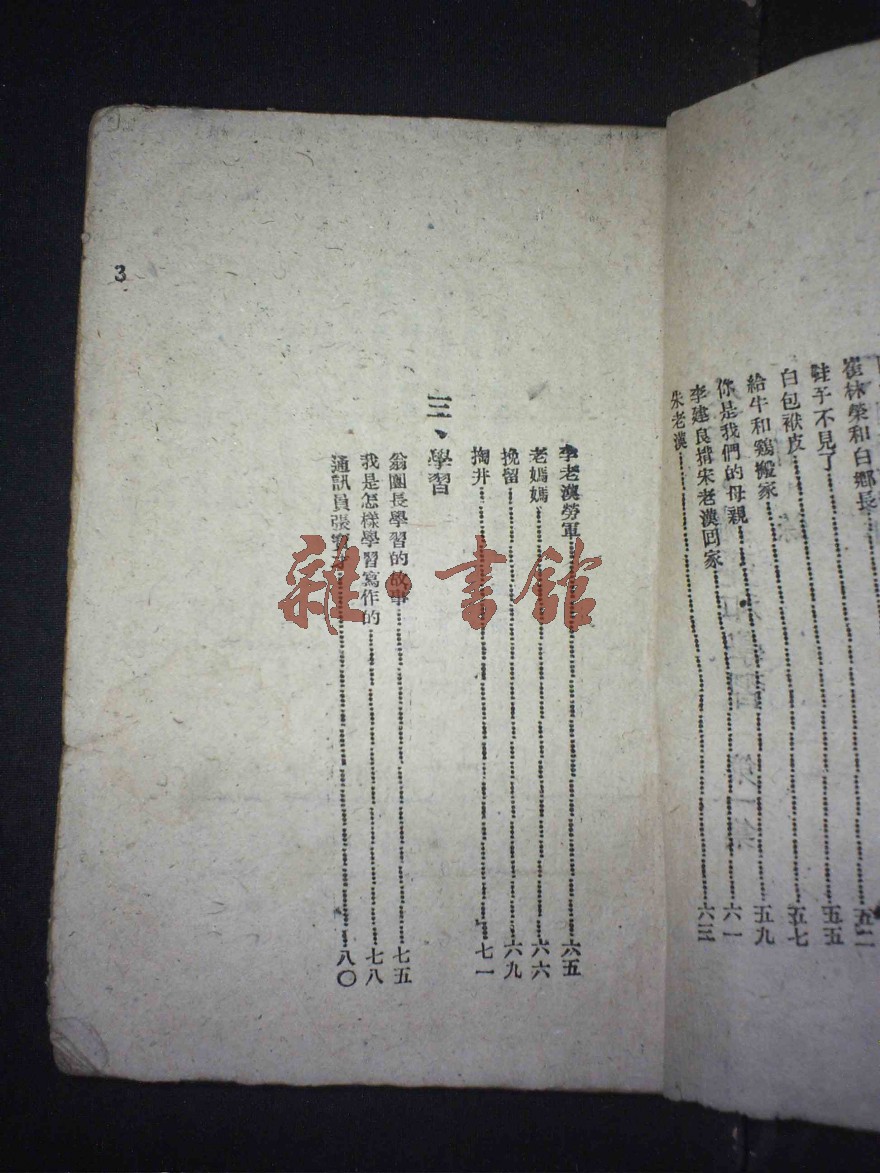 崔林榮和白鄉長
子不見了……五二
白包袱皮……五五
給牛和鷄搬家……五七
你是我們的母親……五九
李建良揹宋老漢回家……六一
朱老漢……六三
李老漢勞軍……六五
老媽媽……六六
挽留……六九
掏井……七一
三、學習
翁團長學習的故事……七五
我是怎樣學習寫作的……七八
通訊員張……八〇
3
雜·書館